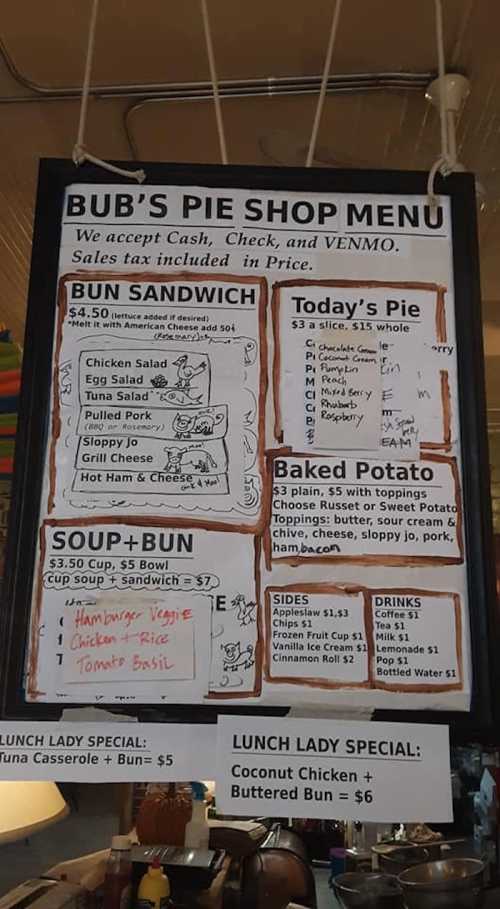 BUB'S PIE SHOP MENU
We accept Cash, Check, and VENMO.
Sales tax included in Price.
BUN SANDWICH
$4.50 (lettuce added if desired)
*Melt it with American Cheese add 50¢
Chicken Salad
Egg Salad
Tuna Salad
Pulled Pork
(BBQ or Rosemary)
Sloppy Jo
Grill Cheese
Hot Ham & Cheese
Today's Pie
$3 a slice. $15 whole
Chocolate Cream
Coconut Cream
Pumpkin
Peach
Mixed Berry
Rhubarb
Raspberry
Baked Potato
$3 plain, $5 with toppings
Choose Russet or Sweet Potato
Toppings: butter, sour cream &
chive, cheese, sloppy jo, pork,
ham, bacon
SOUP+BUN
$3.50 Cup, $5 Bowl
cup soup + sandwich = $7
Hamburger Veggie
Chicken + Rice
Tomato Basil
SIDES
Appleslaw $1,$3
Chips $1
Frozen Fruit Cup $1
Vanilla Ice Cream $1
Cinnamon Roll $2
DRINKS
Coffee $1
Tea $1
Milk $1
Lemonade $1
Pop $1
Bottled Water $1
LUNCH LADY SPECIAL:
Tuna Casserole + Bun= $5
LUNCH LADY SPECIAL:
Coconut Chicken +
Buttered Bun = $6